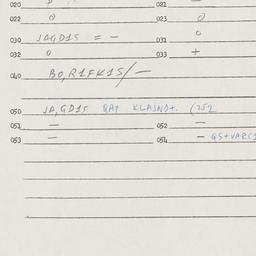 020 021
022 0 023 0
030 JAGD15 = - 031 0
032 0 033 +
040 BO,R1FK15/-
050 JA,GD15 QAY KLAJND+. (252
051 - 052 -
053 - 054 - GS+VARC1